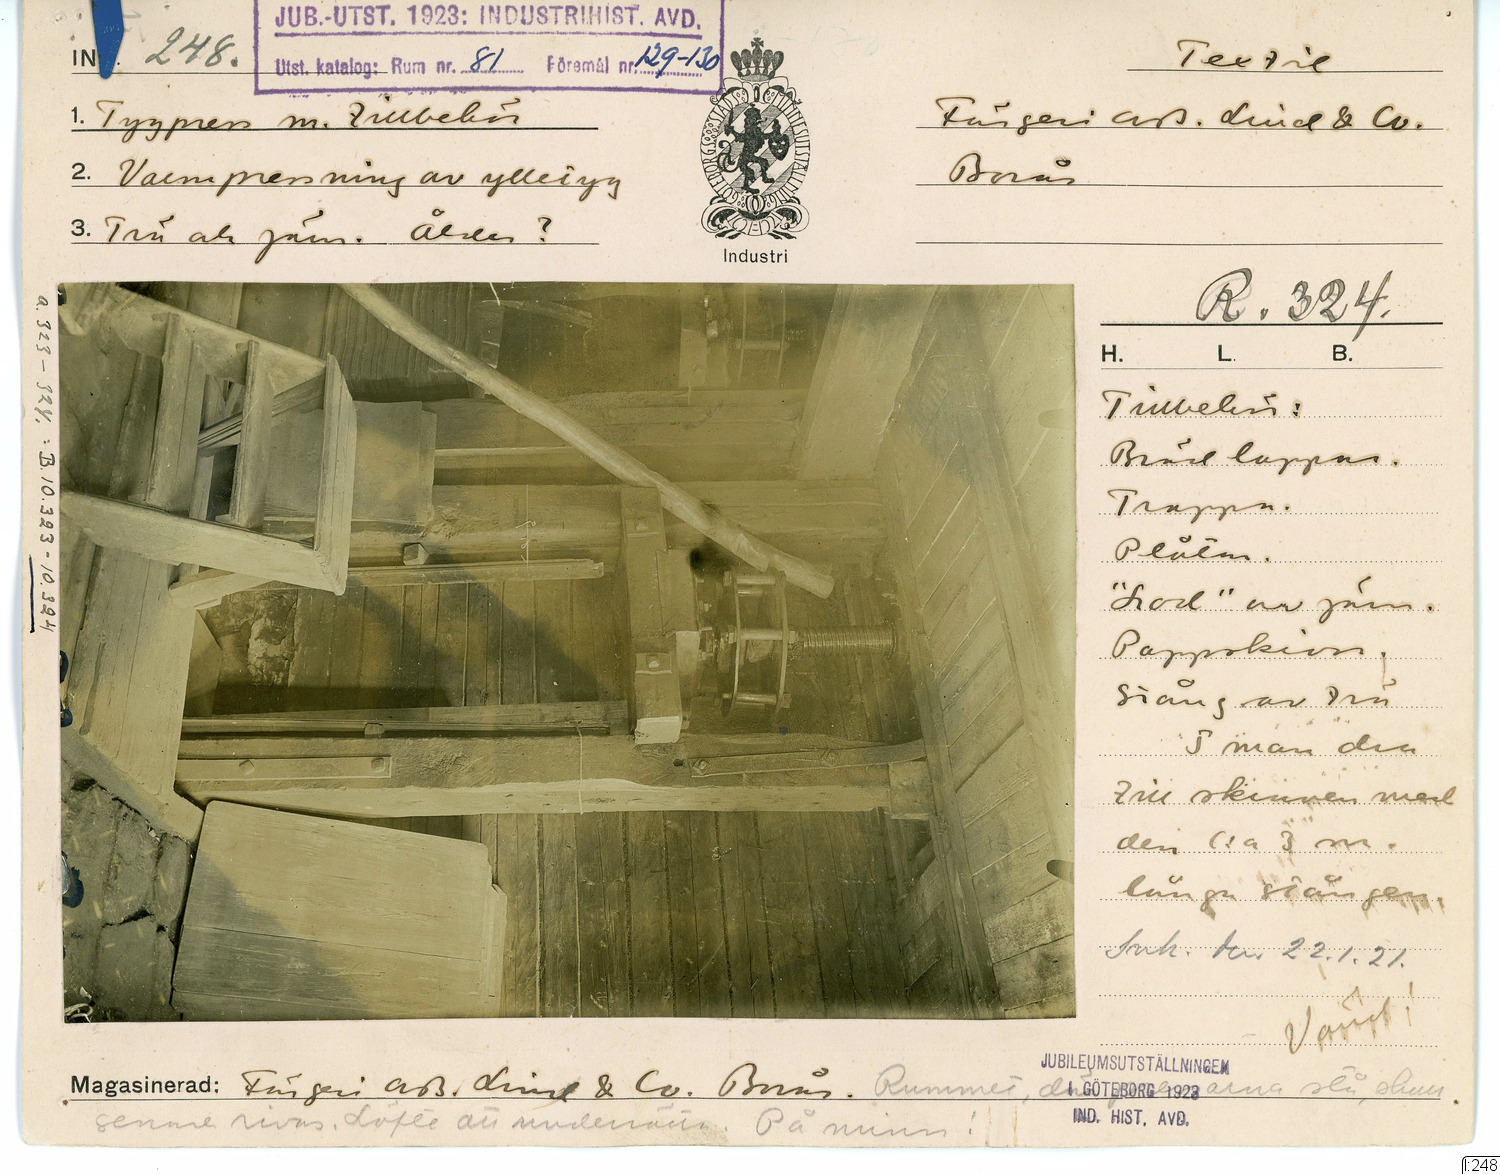 JUB.-UTST. 1923: INDUSTRIHIST. AVD.
Utst. katalog: Rum nr. 81 Föremål nr. 129-130
IN 248.
Textil
1. Tygpress m. Tillbehör
Färgeri A.B. Lind & Co.
2. Varmpressning av ylletyg
Borås
3. Trä och järn. Ålder?
GÖTEBORGS STADS
Industri
R. 324.
H. L. B.
a. 323 - 324. : B. 10.323 - 10.324
Tillbehör:
Bräd lappar.
Trappa.
Plåtar.
"Lod" av järn.
Pappskivor.
Stång av trä
man den
till skruven med
den c:a 3 m.
långa stången.
Ink. den 22.1.21.
Vänd!
Magasinerad: Färgeri A.B. Lind & Co. Borås. Rummet, där stå, skall
genare rivas. Löfte att underrätta. På minn!
JUBILEUMSUTSTÄLLNINGEN
I GÖTEBORG 1923
IND. HIST. AVD.
I:248